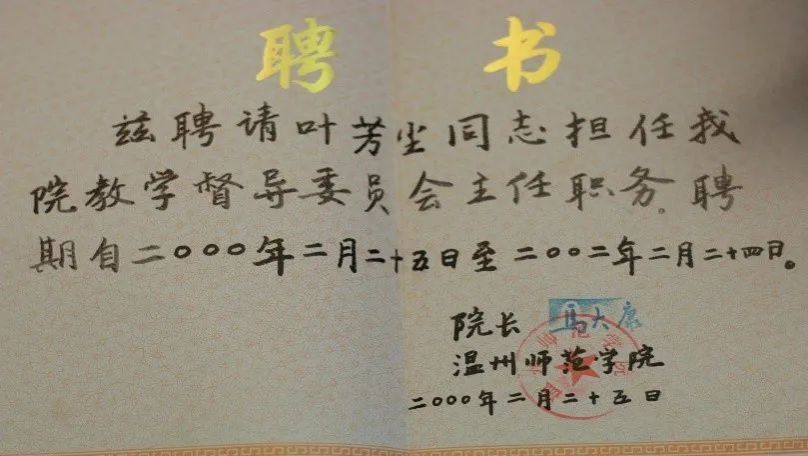 聘书
兹聘请叶芳尘同志担任我
院教学督导委员会主任职务。聘
期自二〇〇〇年二月二十五日至二〇〇二年二月二十四日。
院长 马大康
温州师范学院
二〇〇〇年二月二十五日